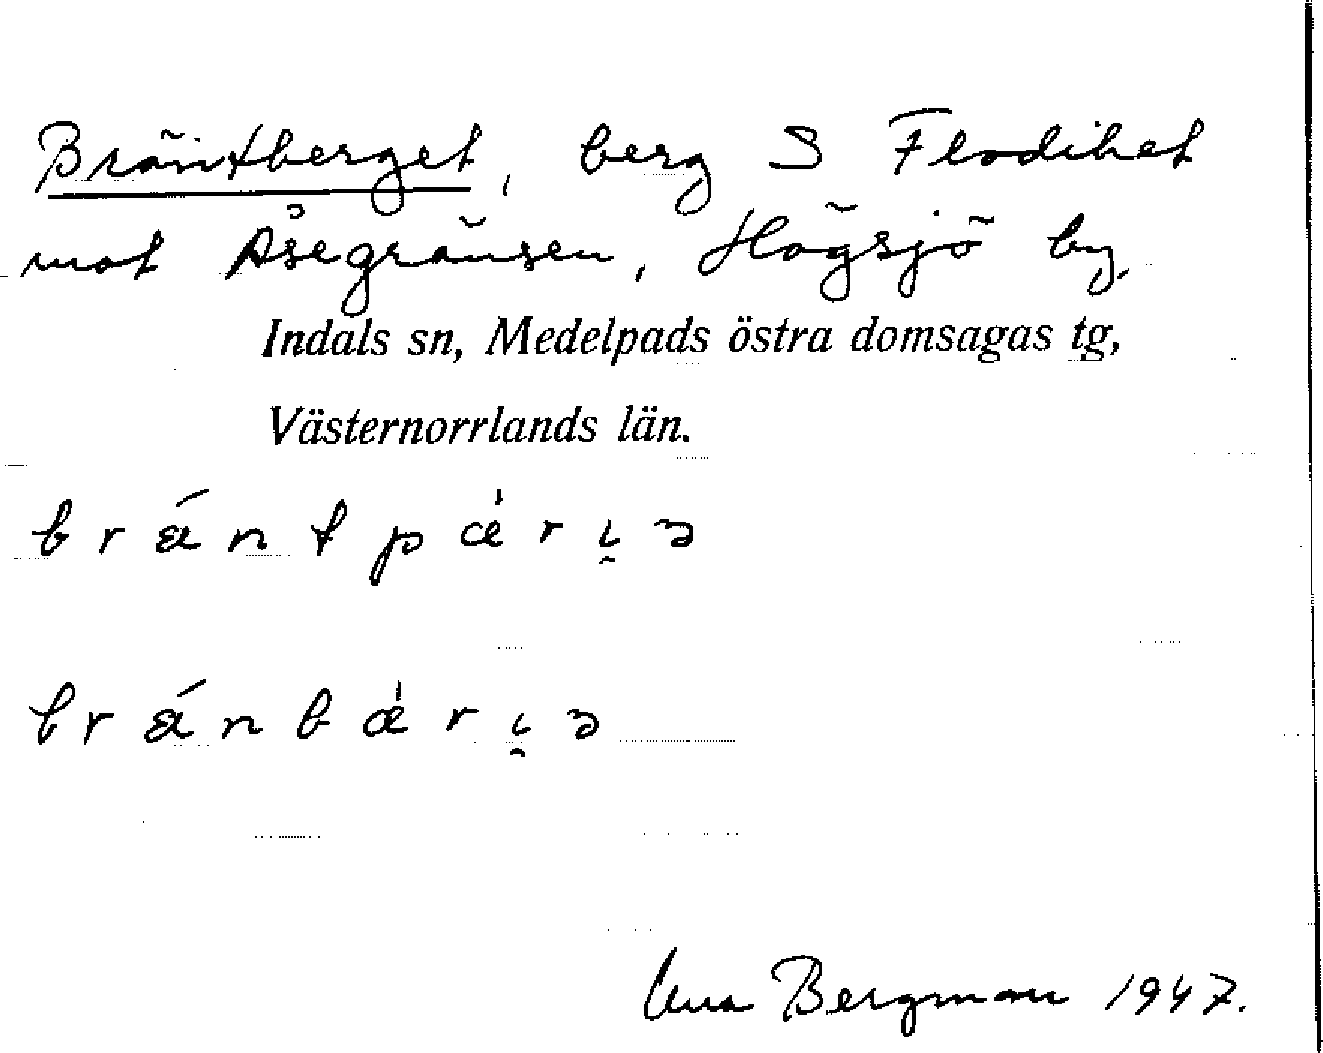 Bräntberget, berg S Flodiket
mot Åsegränsen, Högsjö by,
Indals sn, Medelpads östra domsagas tg,
Västernorrlands län.
Bergman 1947.